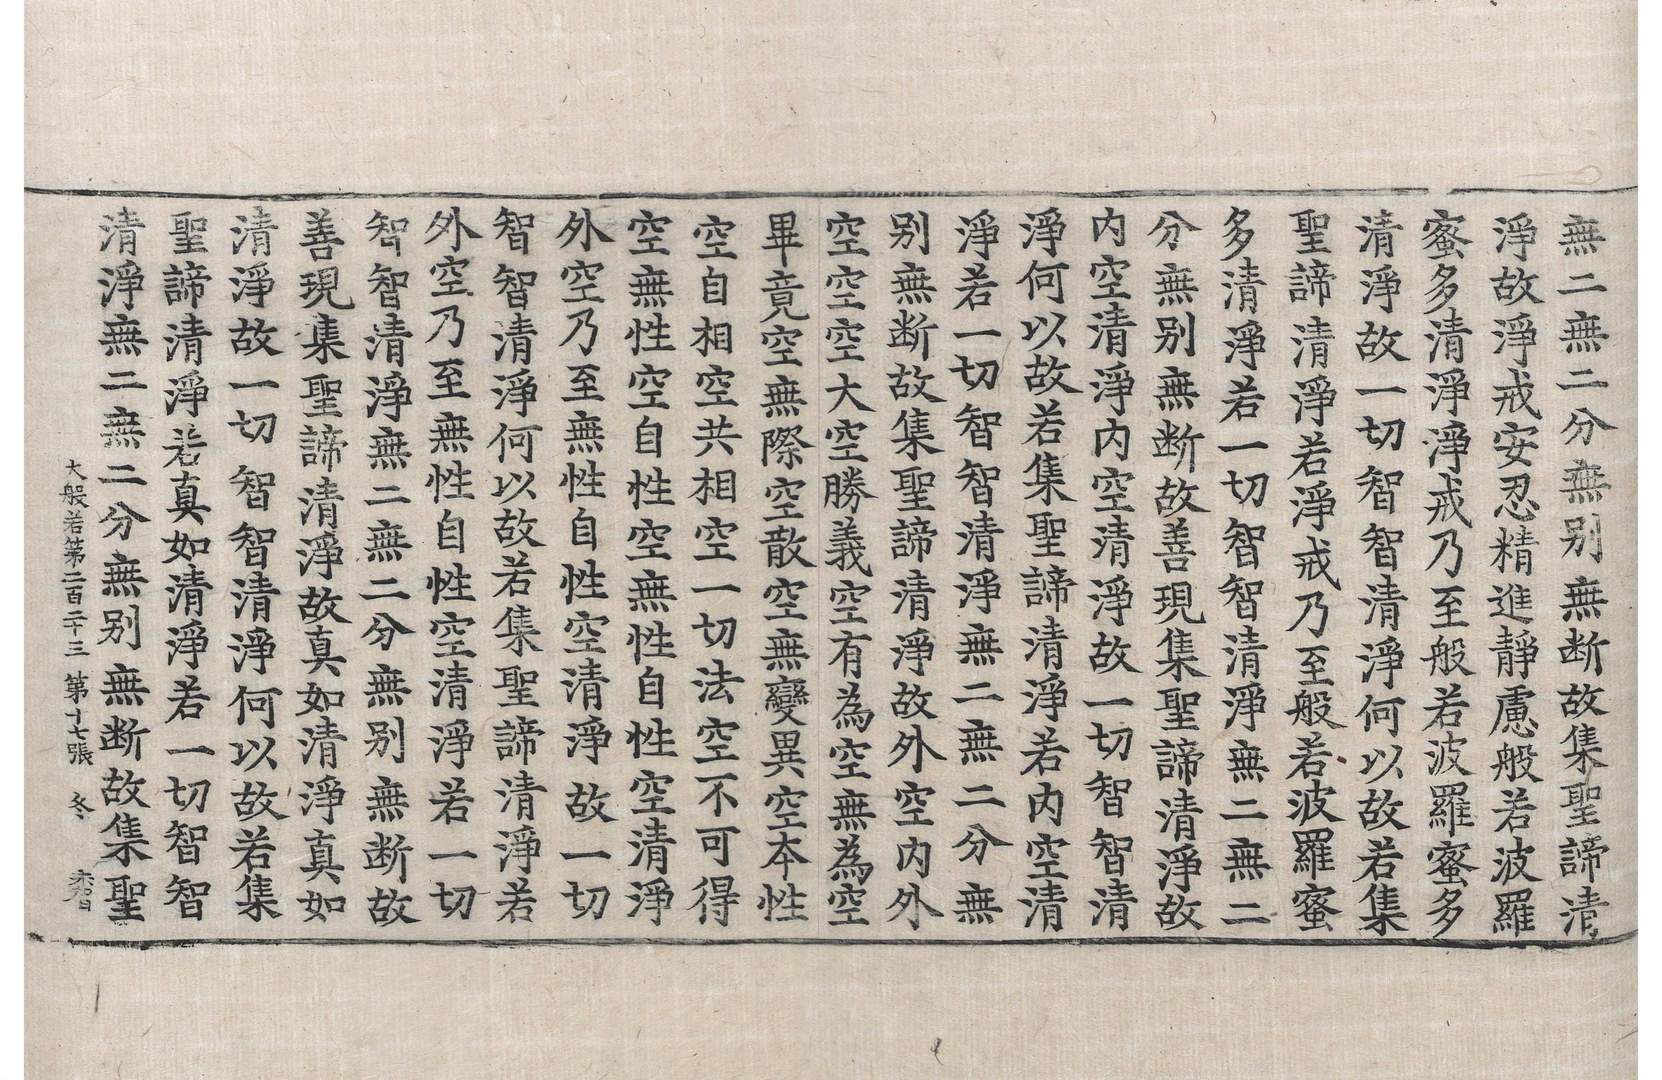 無二無二分無别無断故集聖諦清
淨故淨戒安忍精進靜慮般若波羅
蜜多清淨淨戒乃至般若波羅蜜多
清淨故一切智智清淨何以故若集
聖諦清淨若淨戒乃至般若波羅蜜
多清淨若一切智智清淨無二無二
分無别無断故善現集聖諦清淨故
内空清淨内空清淨故一切智智清
淨何以故若集聖諦清淨若内空清
淨若一切智智清淨無二無二分無
别無断故集聖諦清淨故外空内外
空空空大空勝義空有為空無為空
畢竟空無際空散空無變異空本性
空自相空共相空一切法空不可得
空無性空自性空無性自性空清淨
外空乃至無性自性空清淨故一切
智智清淨何以故若集聖諦清淨若
外空乃至無性自性空清淨若一切
智智清淨無二無二分無别無断故
善現集聖諦清淨故真如清淨真如
清淨故一切智智清淨何以故若集
聖諦清淨若真如清淨若一切智智
清淨無二無二分無别無断故集聖
大般若第二百二十三 第十七張 冬